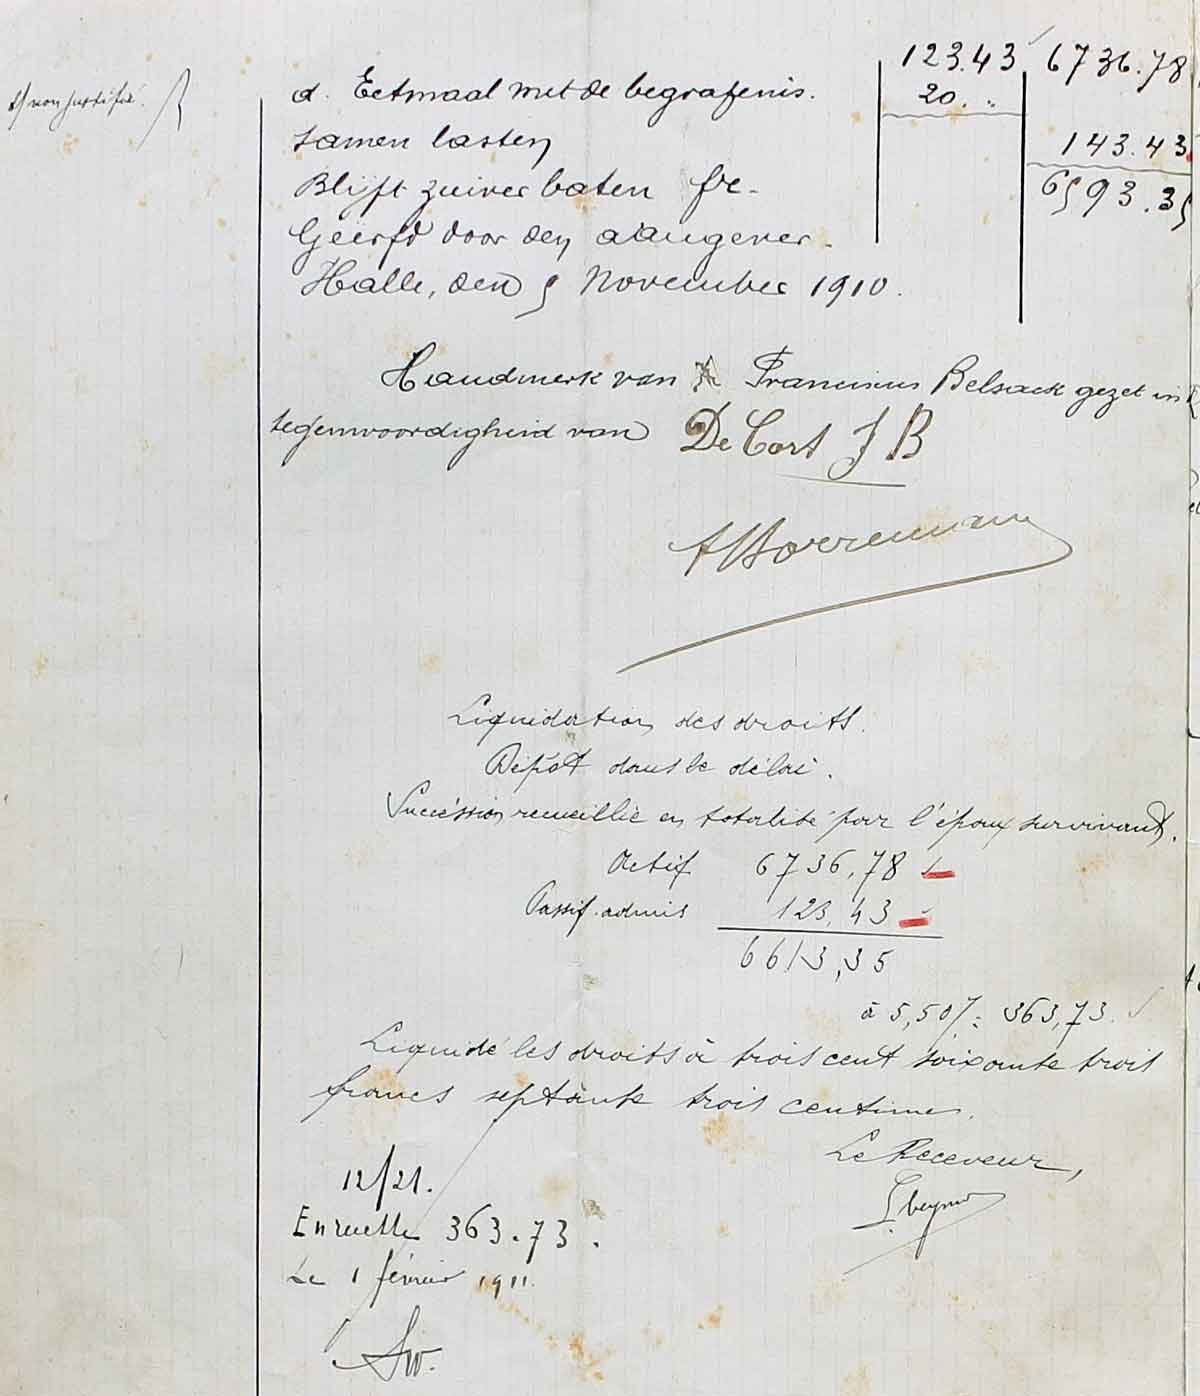 123.43 6736.78
non justifié.
d. Eetmaal met de begrafenis. 20. "
Samen lasten 143.43
Blijft zuiver baten fr. 6593.35
Geërfd door den aangever.
Halle, den 5 November 1910.
Handmerk van Francinus Belsack gezet in
tegenwoordigheid van De Cort J B
Borremans
Liquidation des droits.
Dépôt dans le délai.
Succéssion recueillie en totalité par l'époux survivant.
Actif 6736,78
Passif admis 123,43
6613,35
à 5,50%: 363,73.
Liquidé les droits à trois cent soixante trois
francs septante trois centimes.
Le Receveur,
12/21.
En recette 363.73.
Le 1 février 1911.